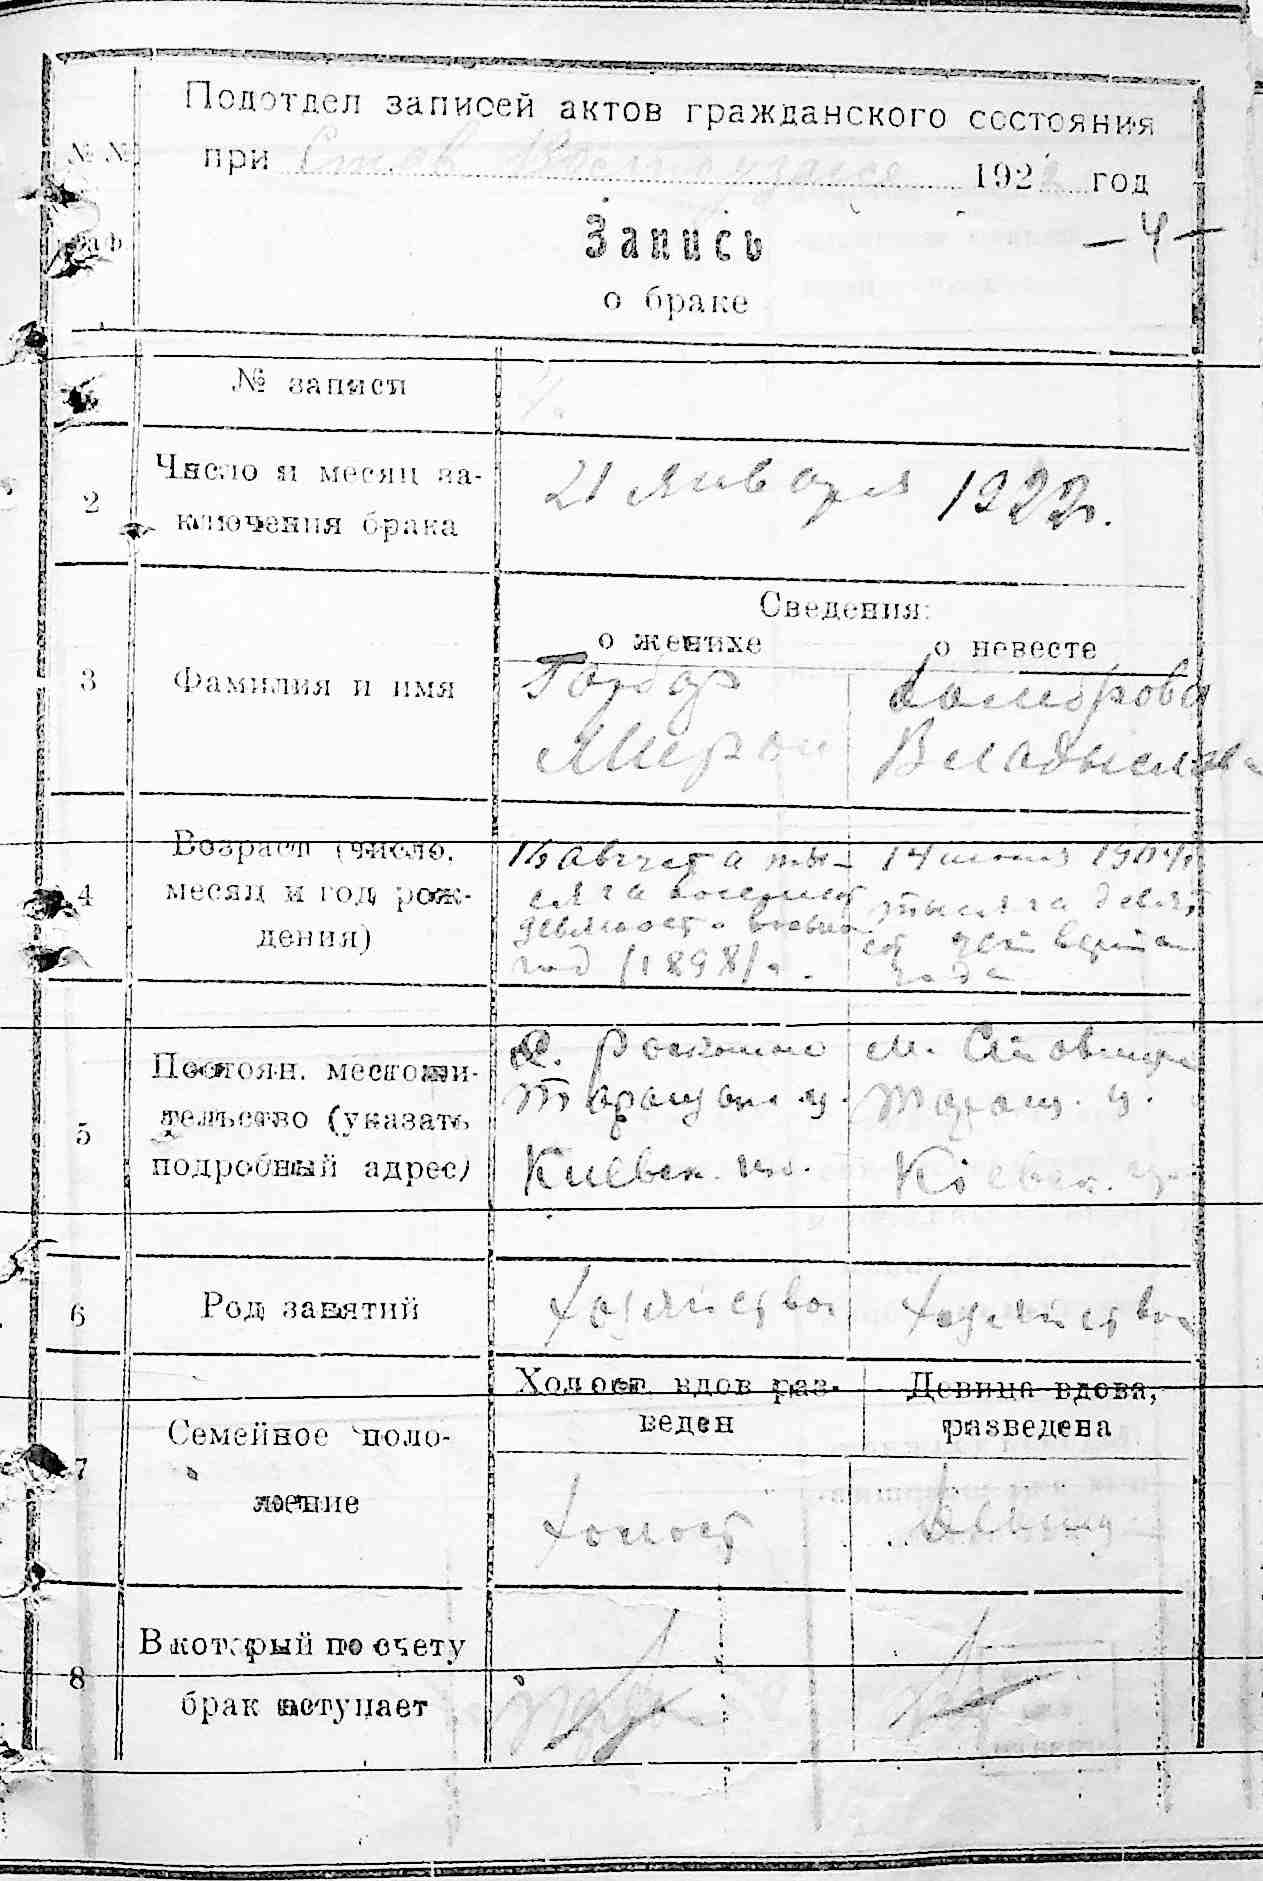 №№
Подотдел записей актов гражданского состояния
при 1922 год
граф
Запись
— 4 —
о браке
№ записи
2
Число и месяц за-
ключения брака
21 января 1922г.
Сведения:
о женихе
о невесте
3
Фамилия и имя
Мирон
Владыслава
4
Возраст (число,
месяц и год рож-
дения)
августа ты-
сяча восемсот
девяносто восьмо
год (1898) г.
14 1904
тысяча девят
сот четвертого
года
5
Постоян. местожи-
тельство (указать
подробный адрес)
с.
Таращан. у.
Киевск. губ.
м. Ставище
Таращ. у.
Кіевск. губ.
6
Род занятий
хозяйство
хозяйство
7
Семейное поло-
жение
Холост вдов раз-
веден
Девица вдова,
разведена
холост
девица
8
В который по счету
брак вступает